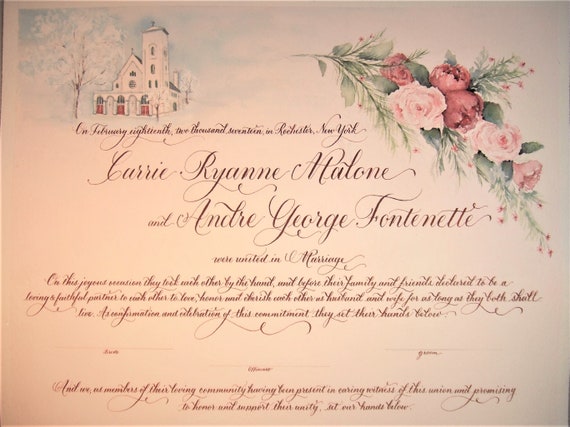 On February eighteenth, two thousand seventeen, in Rochester, New York
Carrie Ryanne Malone
and Andre George Fontenette
were united in Marriage
On this joyous occasion they took each other by the hand, and before their family and friends declared to be a
loving & faithful partner to each other to love, honor and cherish each other as husband and wife for as long as they both shall
live. As confirmation and celebration of this commitment they set their hands below.
bride groom
officiant
And we, as members of their loving community having been present in caring witness of this union and promising
to honor and support their unity, set our hands below.